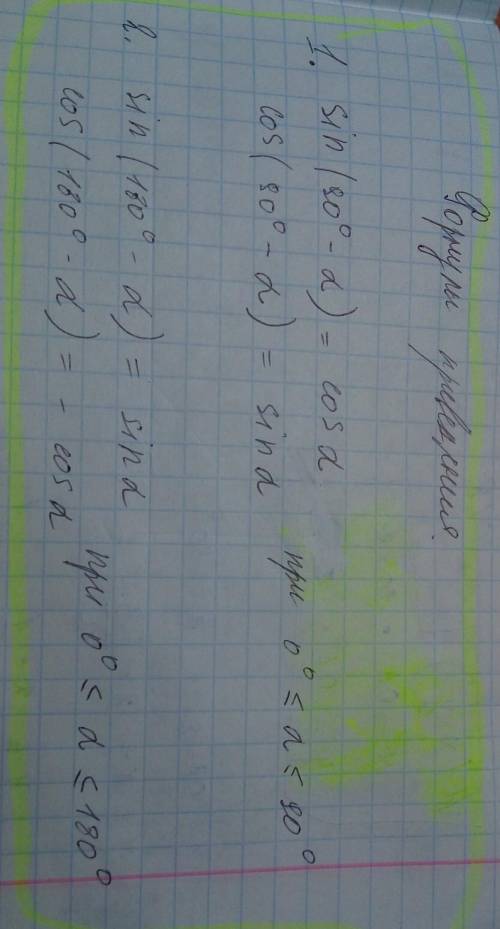 Формулы приведения.
1. sin (90° - α) = cos α
cos (90° - α) = sin α
при 0° ≤ α ≤ 90°
2. sin (180° - α) = sin α
cos (180° - α) = - cos α
при 0° ≤ α ≤ 180°